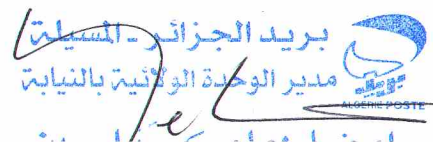 بريد الجزائر - المسيلة
مدير الوحدة الولائية بالنيابة
بريد
ALGERIE POSTE